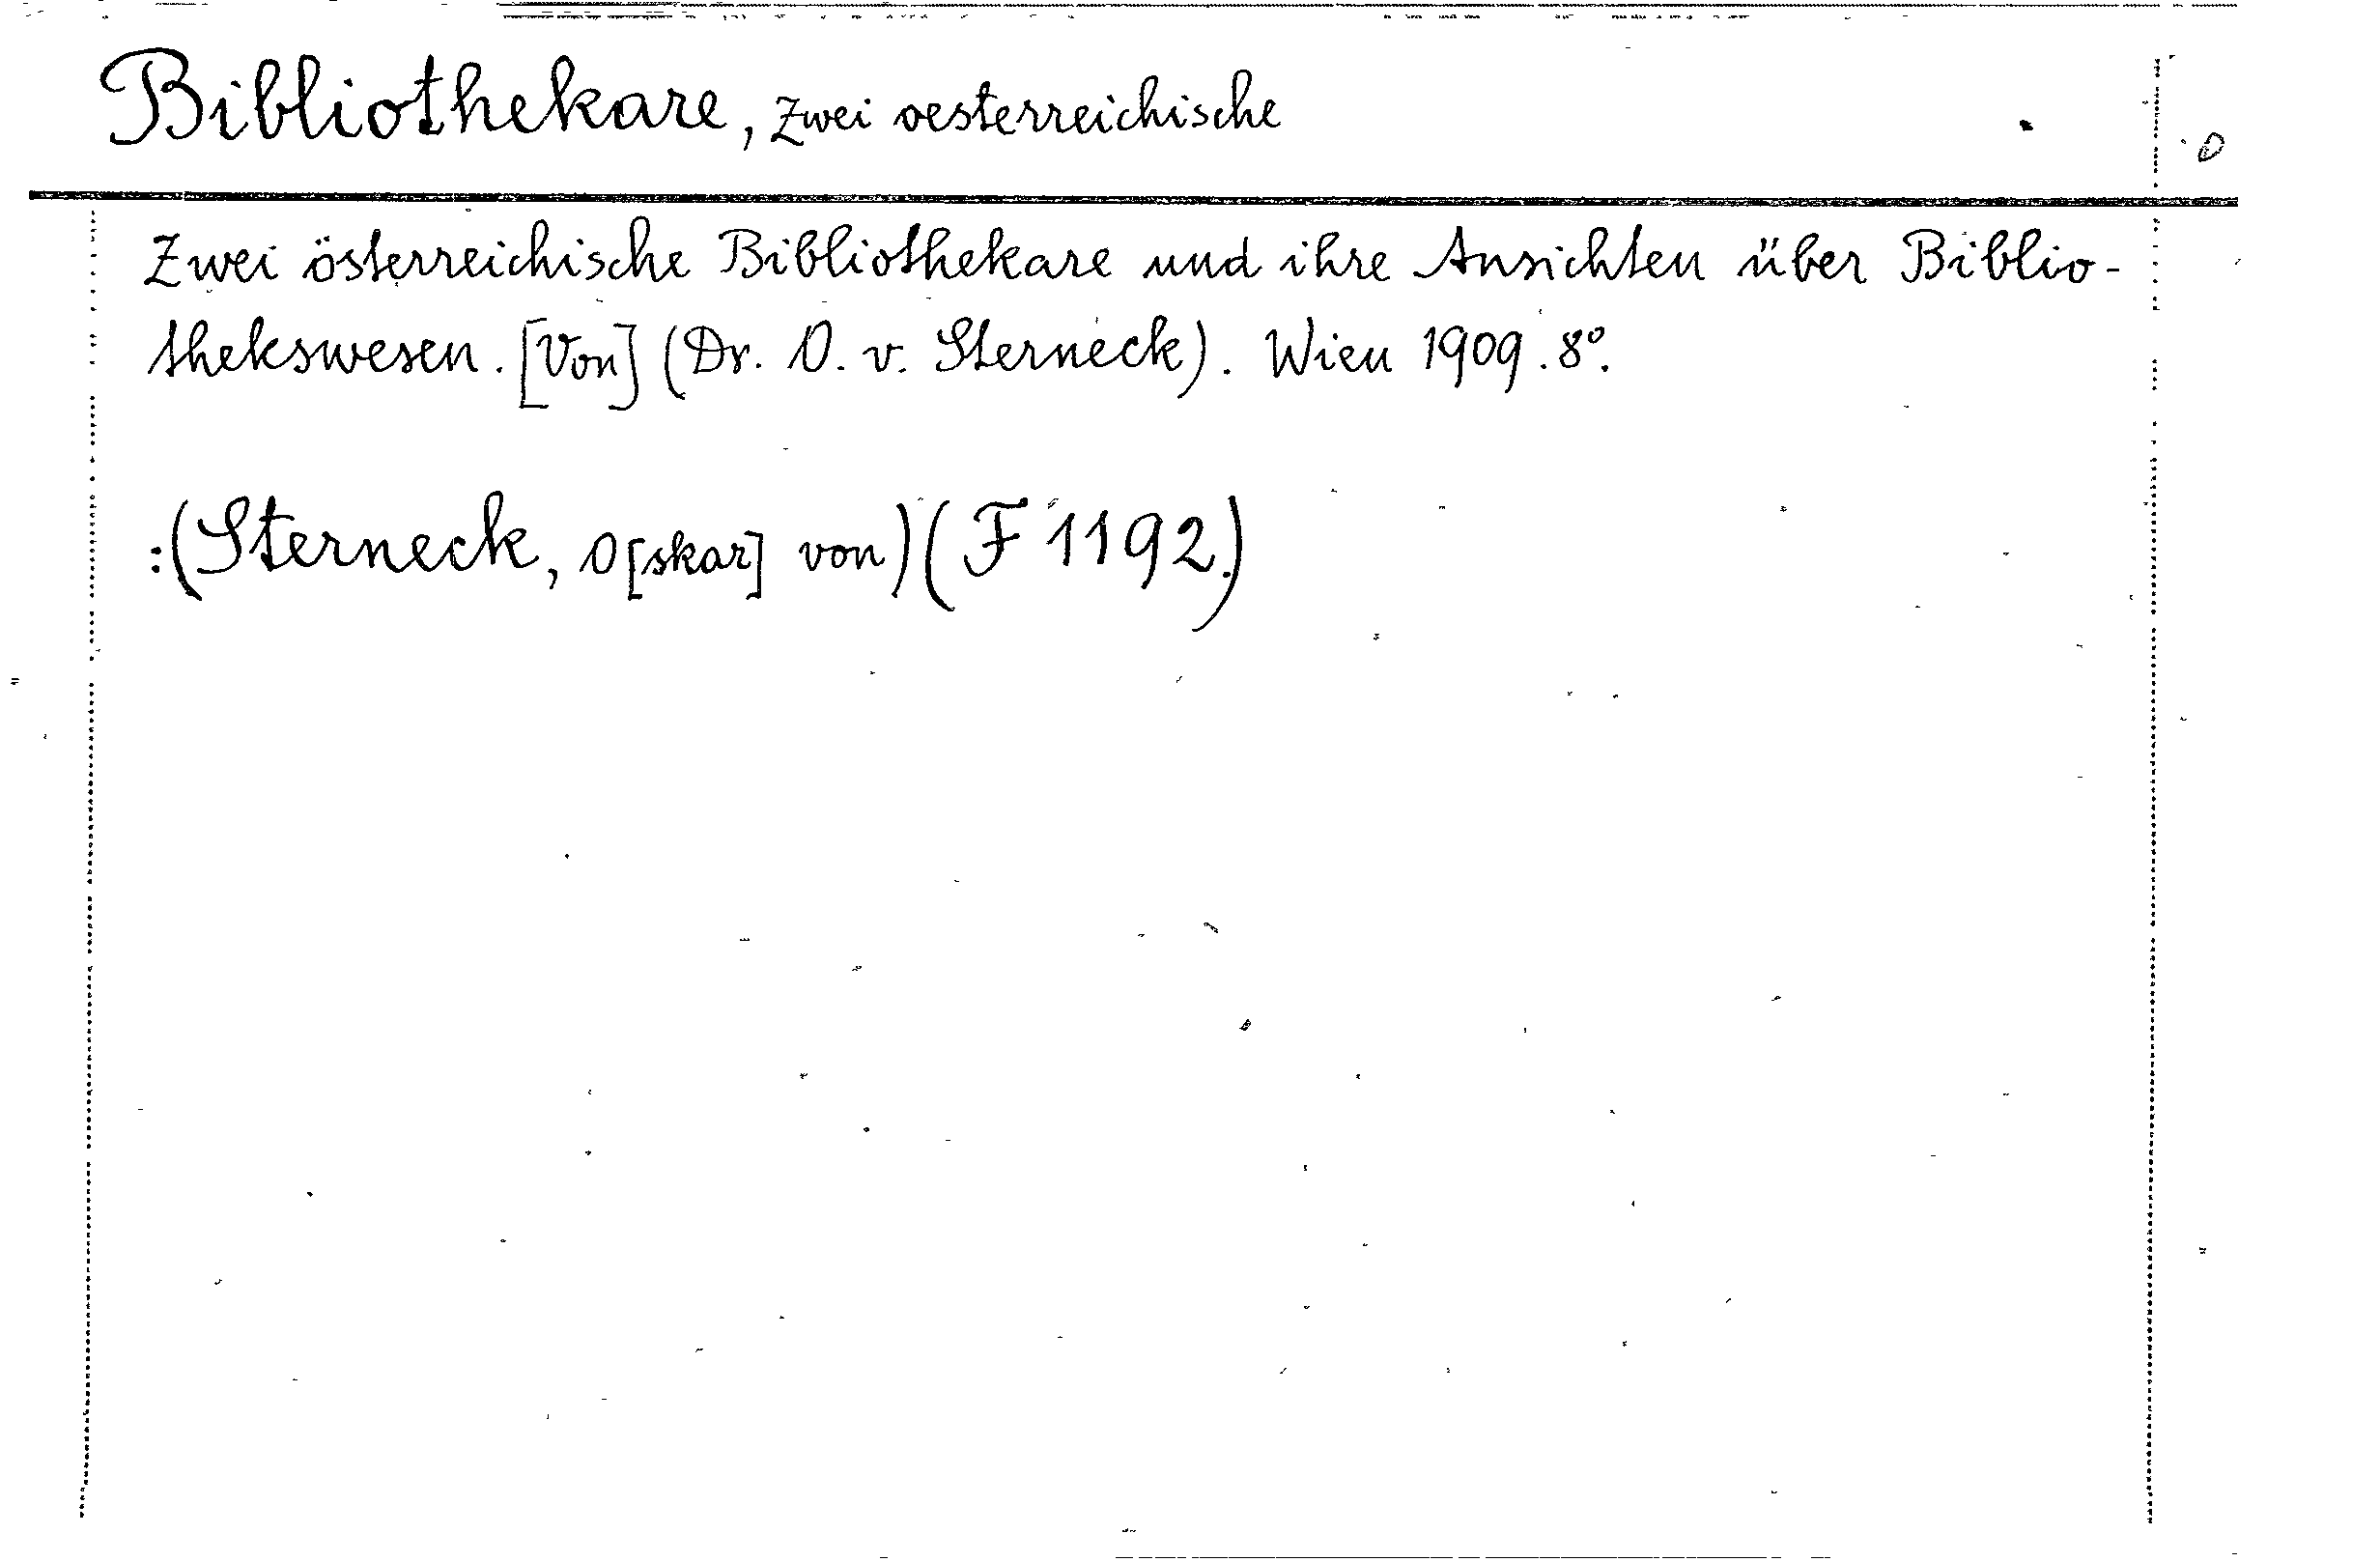 Bibliothekare, zwei oesterreichische
Zwei österreichische Bibliothekare und ihre Ansichten über Biblio-
thekswesen. [Von] (Dr. O. v. Sterneck). Wien 1909. 8°.
:(Sterneck, O[skar] von) (F 1192.)